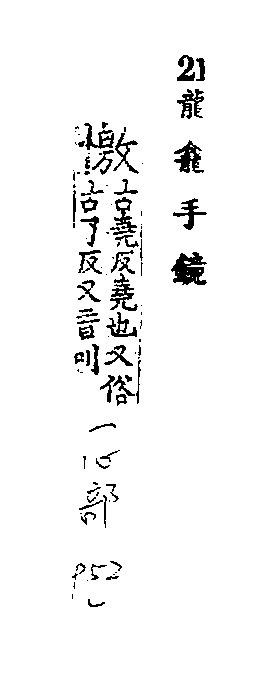 21 龍龕手鏡
憿 古堯反堯也又俗
古了反又音叫
一心部
P52